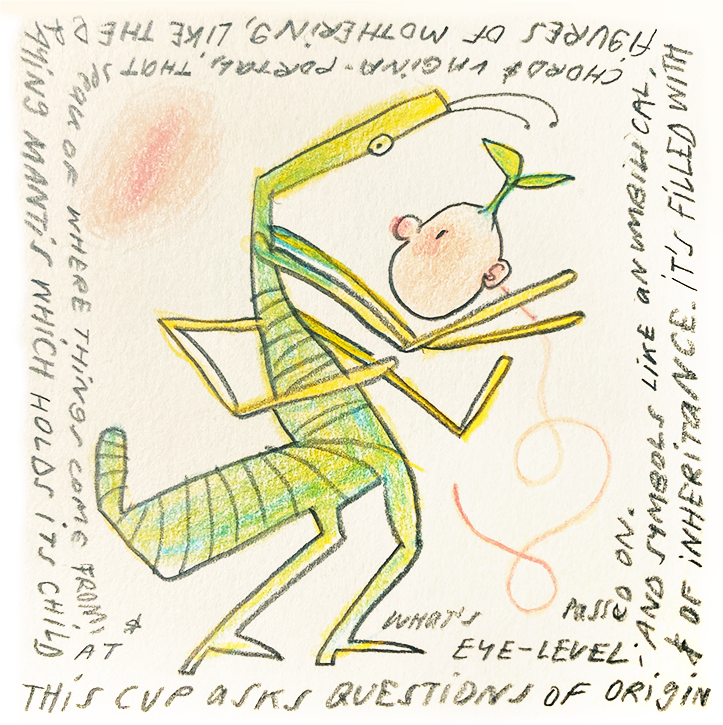 THIS CUP ASKS QUESTIONS OF ORIGIN
& OF INHERITANCE. IT'S FILLED WITH
FIGURES OF MOTHERING, LIKE THE P
RAYING MANTIS WHICH HOLDS ITS CHILD
AT EYE-LEVEL;
AND SYMBOLS LIKE AN UMBILICAL
CHORD & VAGINA-PORTAL, THAT SP
EAK OF WHERE THINGS COME FROM, &
WHAT'S PASSED ON.